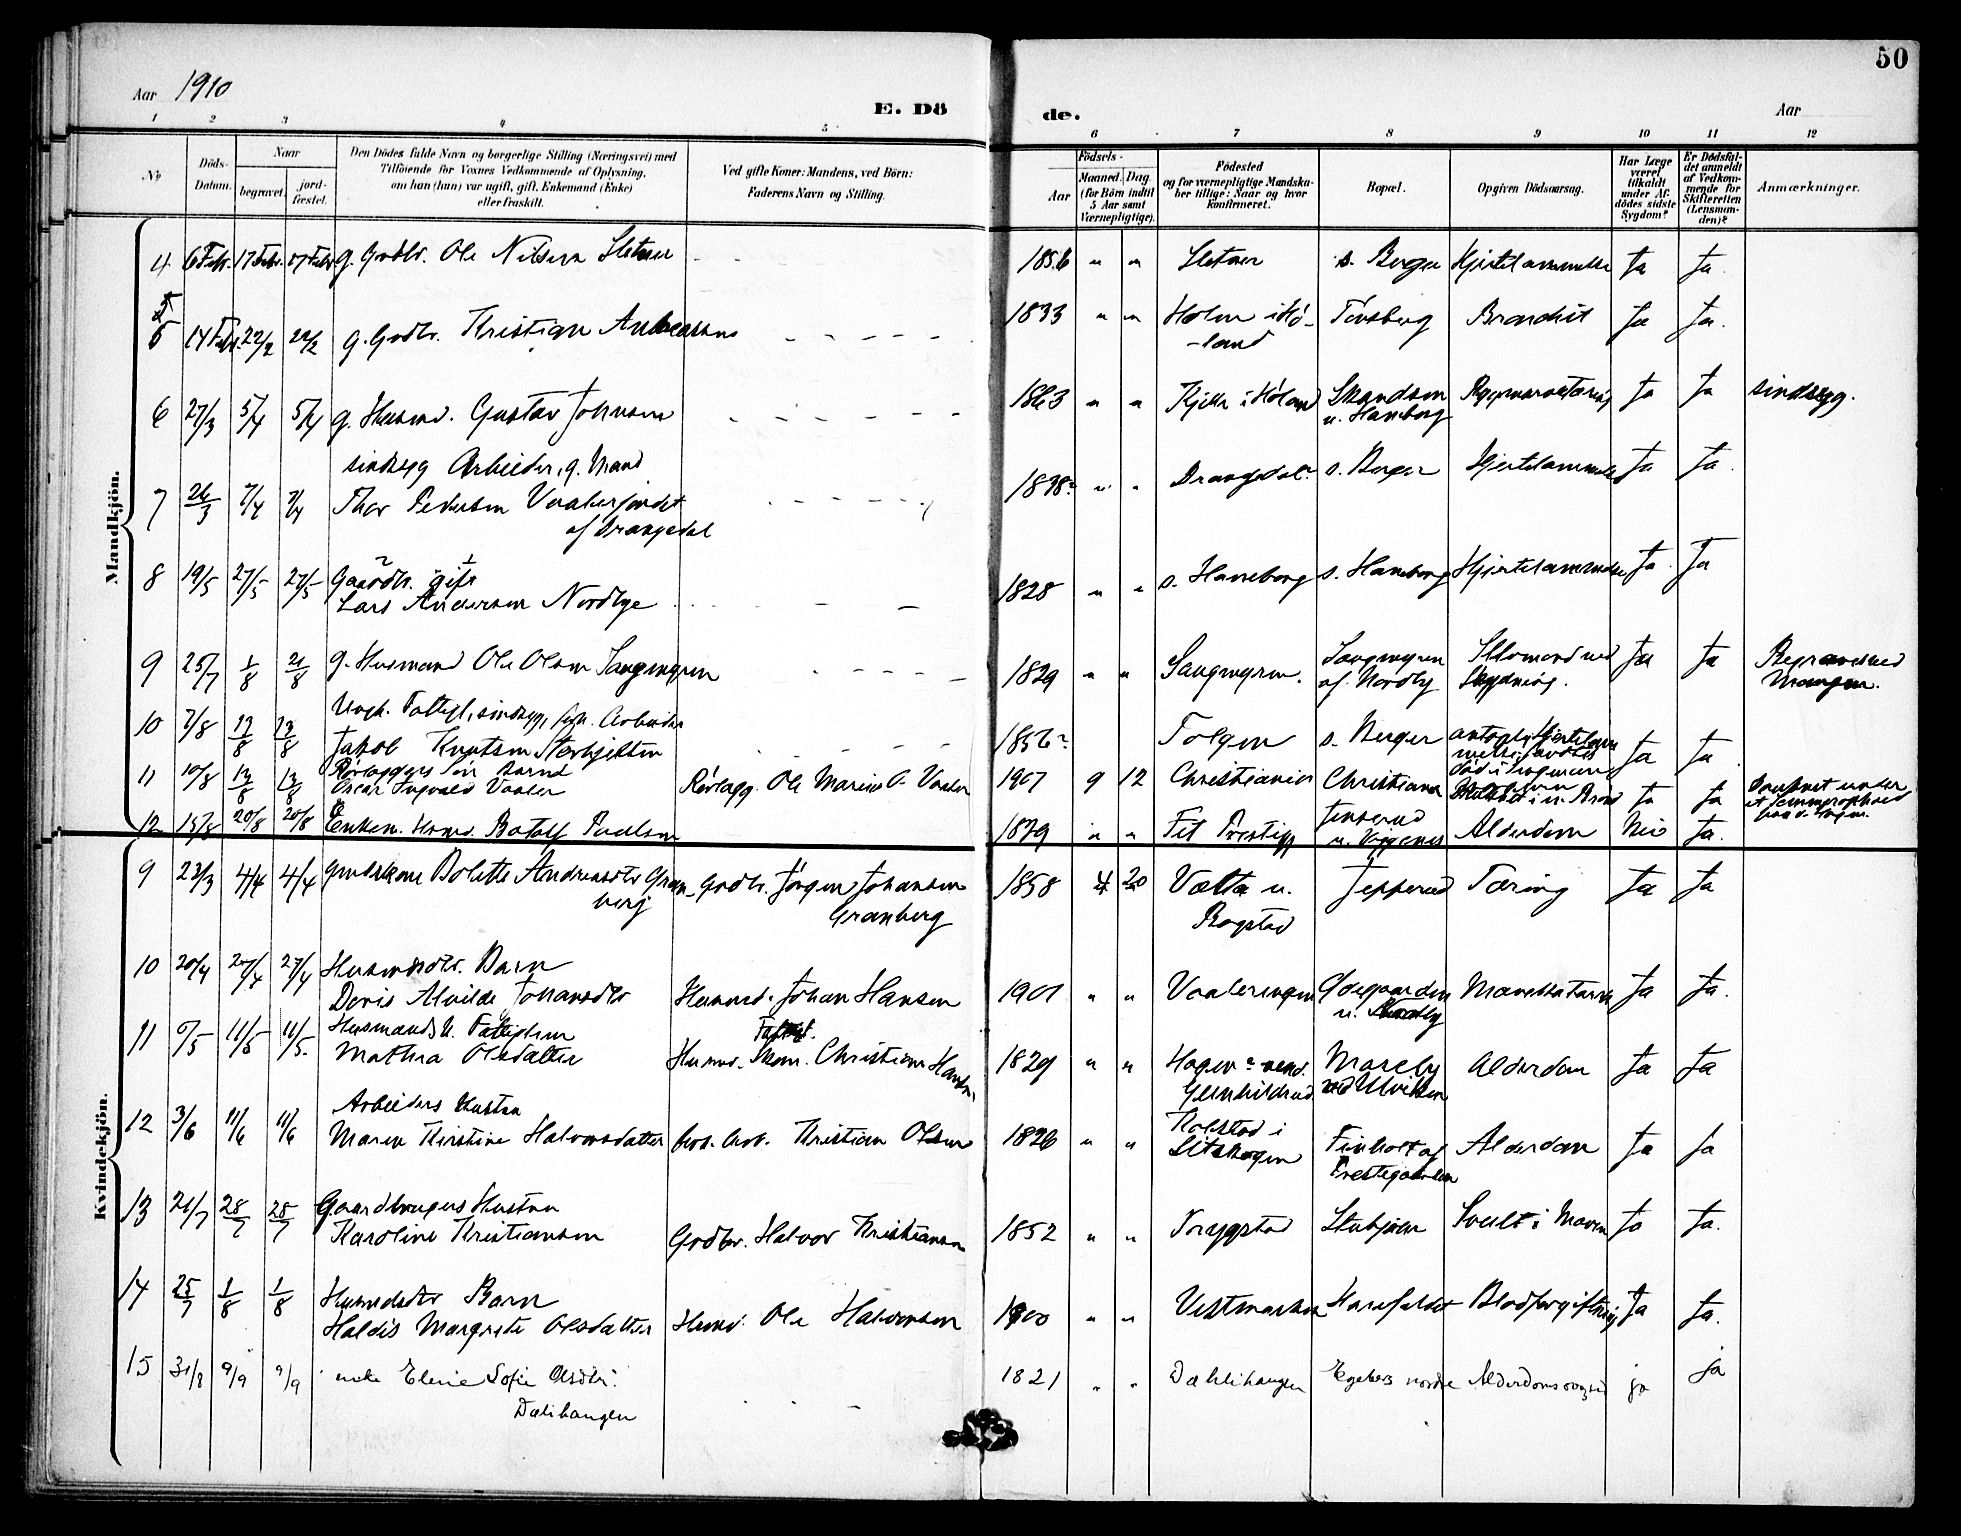 50
Aar 1910
E. Dö
de.
Aar
1 2 3 4 5 6 7 8 9 10 11 12
No
Döds-
Datum.
Naar
begravet.
jord-
fæstet.
Den Dödes fulde Navn og borgerlige Stilling (Næringsvei) med
Tilföiende for Voxnes Vedkommende af Oplysning,
om han (hun) var ugift, gift, Enkemand (Enke)
eller fraskilt.
Ved gifte Koner: Mandens, ved Börn:
Faderens Navn og Stilling.
Födsels-
Aar
Maaned. Dag.
(for Börn indtil
5 Aar samt
Værnepligtige).
Födested
og for værnepligtige Mandska-
ber tillige: Naar og hvor
Konfirmeret.
Bopæl.
Opgiven Dödsaarsag.
Har Læge
været
tilkaldt
under Af-
dödes sidste
Sygdom?
Er Dödsfal-
det anmeldt
af Vedkom-
mende for
Skifteretten
(Lensman-
den)?
Anmærkninger.
Mandkjön.
4 6 Febr. 17 Febr. 17 Febr g. Grdbr. Ole Nilsen Sletner 1856 " " Sletner s. Berger Hjertelammelse Ja Ja.
5 14 Febr. 22/2 22/2 g. Grdbr. Kristian Andreassen 1833 " " Holm i Hö-
land Tönsberg Brandsit Ja Ja.
6 27/3 5/4 5/4 g. Husmd. Gustav Johnsen 1863 " " Kjelle i Höland Skandsen
u. Haneborg Rygmarvstæring Ja Ja sindssyg.
sindssyg Arbeider, g. Mand
7 26/3 7/4 7/4 Thor Pedersen Vaalerfjordet
af Drangedal 1838? " " Drangedal? s. Berger Hjertelammelse Ja Ja
8 19/5 27/5 27/5 Gaardbr. gift
Lars Andersen Nordbye 1828 " " s. Haneborg s. Haneborg Hjertelammelse Ja. Ja
9 25/7 1/8 21/8 g. Husmand Ole Olsen Laugmyren 1829 " " Laugmyren. Laugmyren
af Nordby Selvmord ved
Skydning. Ja Ja Begravet ved
Mangen.
10 7/8 13/8 13/8 Ungk. Fattigl., sindssyg, før. Arbeider
Jakob Knutsen 1856? Folgen s. Berger Ja Ja
11 10/8 13/8 13/8 Rörlæggers Sön Barnd
Oscar Ingvald Vaaler Rörlægg. Ole Marius O. Vaaler 1907 9 12 Christiania Christiania Ja Ja Druknet under
et Sommerophold
12 15/8 20/8 20/8 Enkem. Husmd. Botolf Paulsen 1829 " " Fet Prestegj Jenserud
u. Viggenes Alderdom Nei Ja.
Kvindekjön.
9 23/3 4/4 4/4 Grdbrkone Bolette Andreasdtr Gran-
berg Grdbr. Jörgen Johansen
Granberg 1858 4 20 Valtta u.
Bogstad Jepperud Tæring Ja Ja
10 20/4 27/4 27/4 Husmdsdtr. Barn
Doris Alvilde Johansdtr Husmd. Johan Hansen 1901 " " Vaaleringen Ödegaarden
u. Nordby Ja Ja.
11 5/5 11/5 11/5. Husmands K. Fattiglem
Mathea Olsdatter Husmd. Christian Hansen 1829 " " Hagen vend.
Gunhildrud Moreby
Alderdom Ja Ja
12 3/6 11/6 11/6 Arbeiders Hustru
Maren Kirstine Halvorsdatter Kristian Olsen 1826 " " Kolstad i
Setskogen Finholt af
Prestegaarden Alderdom Ja Ja
13 21/7 28/7 28/7 Gaardbrugers Hustru
Karoline Kristiansen Grdbr. Halvor Kristiansen 1852 " " Trygstad Stubjoer Svulst i Maven Ja Ja.
14 25/7 1/8 1/8 Husmdsdtr Barn
Haldis Margrete Olsdatter Husmd. Ole Halvorsen 1900 " " Vestmarken Harefaldet Blodforgiftning Ja Ja.
15 31/8 9/9 9/9 enke Elerie Sofie Olsdtr.
Dælihaugen 1821 " " Dæhlihaugen Egebers nordre ja ja